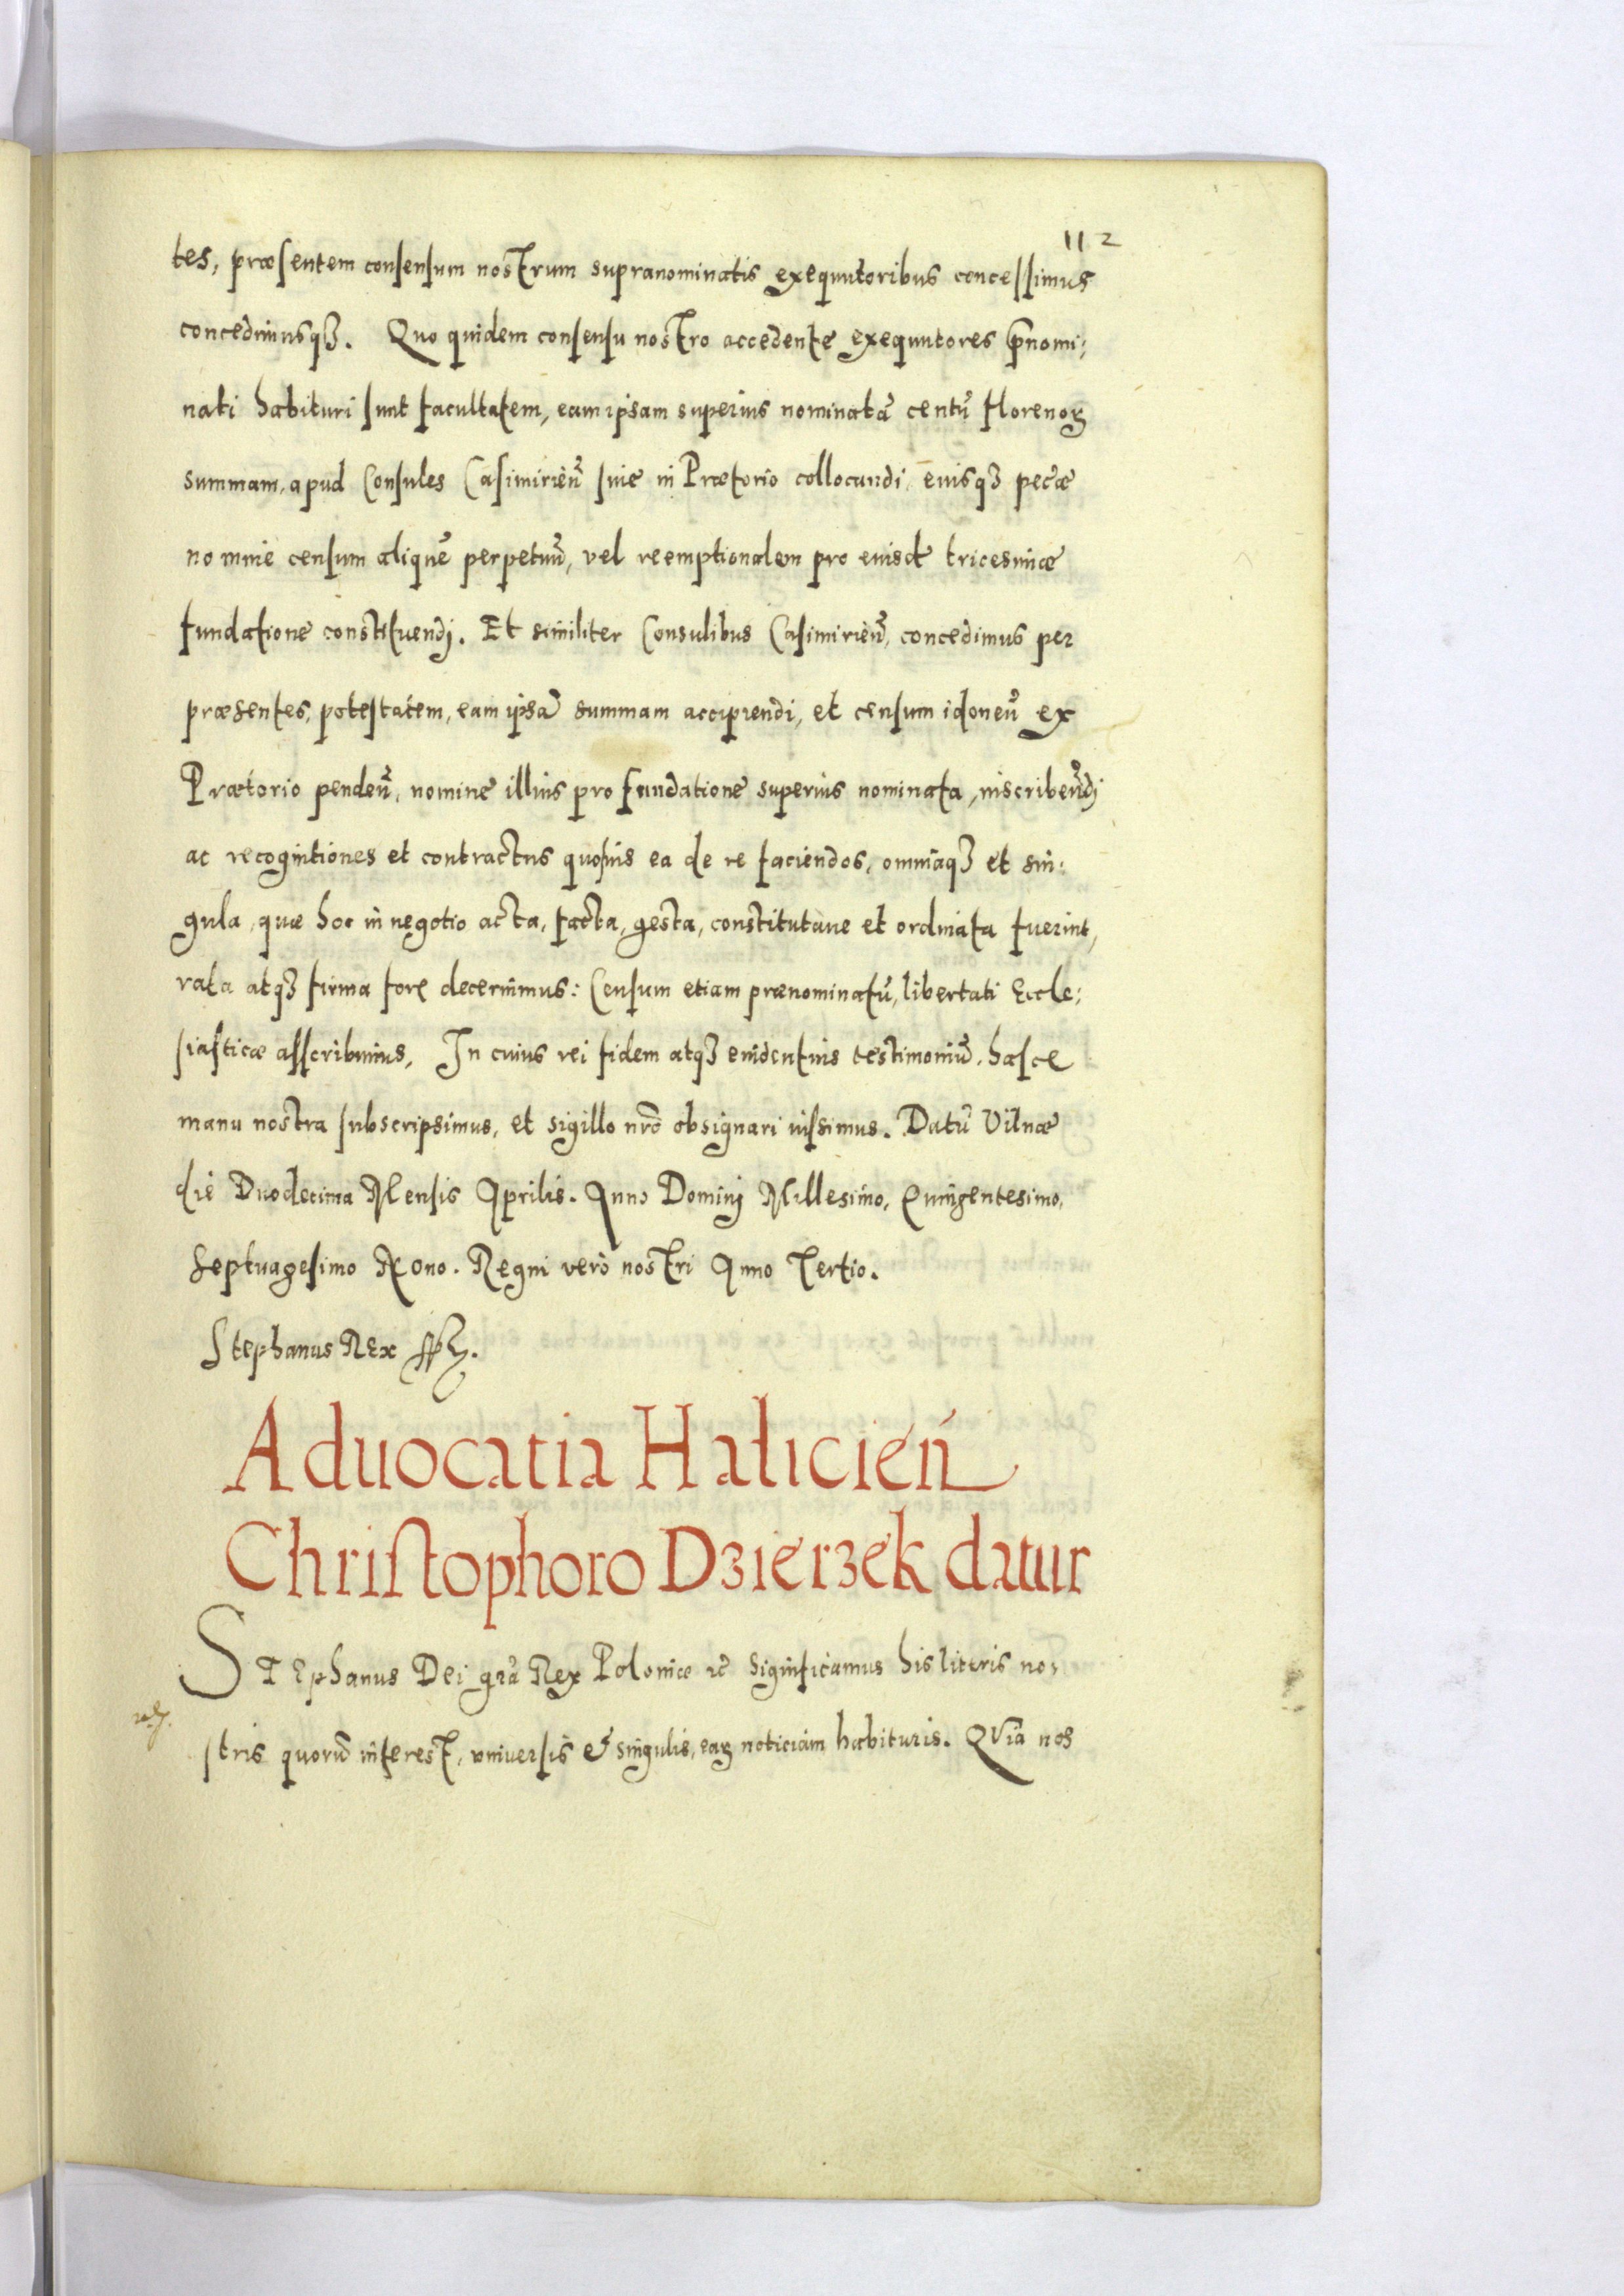 112
tes, præsentem consensum nostrum supranominatis exequutoribus concessimus
concedimusqꝫ. Quo quidem consensu nostro accedente exequutores p̃nomi:
nati habituri sunt facultatem, eam ipsam superius nominatā centū florenoꝝ
summam, apud Consules Casimirieñ siue in Prætorio collocandi, eiusqꝫ pec̃æ
nomine censum aliquē perpetuū, vel reemptionalem pro eiusd̃ tricesimæ
fundatione constituendj. Et similiter Consulibus Casimirieñ, concedimus per
præsentes, potestatem, eam ipsā summam accipiendi, et censum idoneū ex
Prætorio pendeñ, nomine illius pro fundatione superius nominata, inscribeñdj
ac recognitiones et contractus quosuis ea de re faciendos, omniaqꝫ et sin:
gula, quæ hoc in negotio acta, facta, gesta, constitutaue et ordinata fuerint,
rata atqꝫ firma fore decernimus: Censum etiam prænominatū, libertati Eccle:
siasticæ asscribimus, In cuius rei fidem atqꝫ euidentius testimoniū, hasce
manu nostra subscripsimus, et sigillo nr̃o obsignari iussimus. Datū Vilnæ
die Duodecima Mensis Aprilis. Anno Dominj Millesimo, Quingentesimo,
Septuagesimo Nono. Regni verò nostri Anno Tertio.
Stephanus Rex
Aduocatia Halicień
Christophoro Dzierzek datur
STEphanus Dei gr̃a Rex Poloniæ ꝛc̃ Significamus his literis no,
stris quorū interest, vniuersis & singulis, eaꝝ noticiam habituris. QVia nos